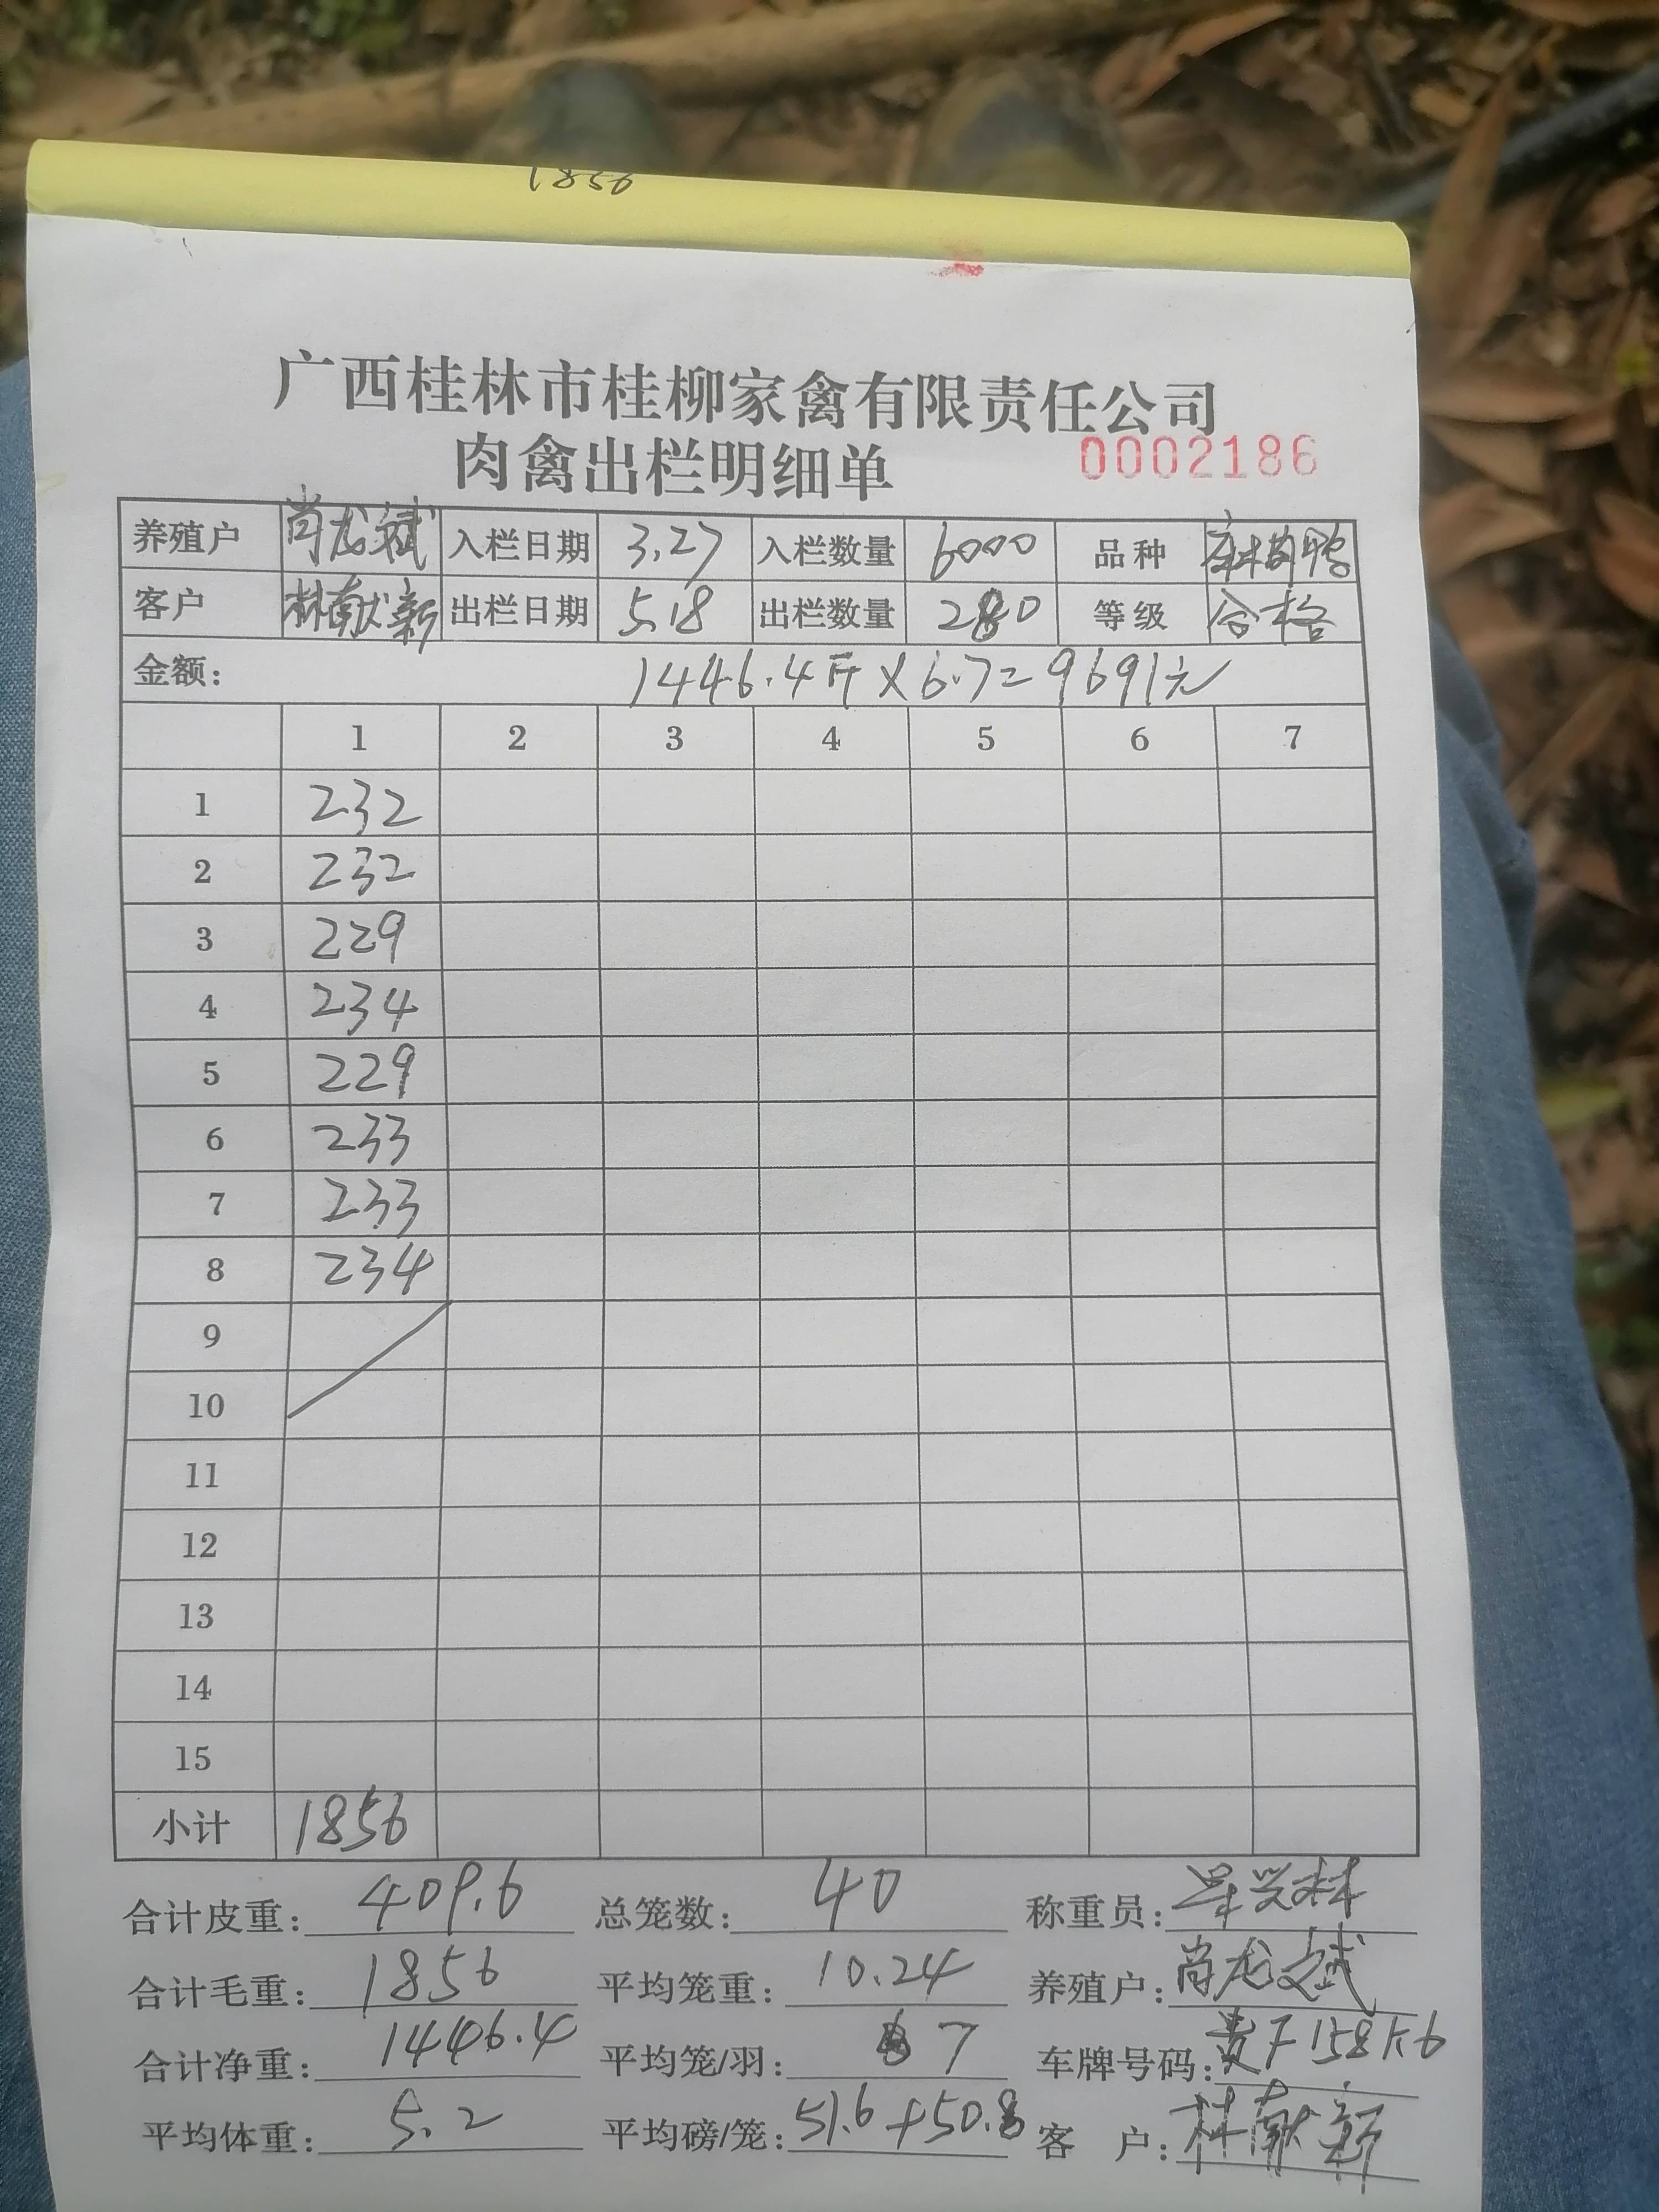 1856
广西桂林市桂柳家禽有限责任公司
肉禽出栏明细单 0002186
养殖户 肖龙斌 入栏日期 3.27 入栏数量 6000 品种 鸭
客户 林献新 出栏日期 5.18 出栏数量 280 等级 合格
金额: 1446.4斤×6.7=9691元
1 2 3 4 5 6 7
1 232
2 232
3 229
4 234
5 229
6 233
7 233
8 234
9
10
11
12
13
14
15
小计 1856
合计皮重: 409.6 总笼数: 40 称重员:
合计毛重: 1856 平均笼重: 10.24 养殖户: 肖龙斌
合计净重: 1446.4 平均笼/羽: 7 车牌号码:
平均体重: 5.2 平均磅/笼: 51.6+50.8 客 户: 林献新